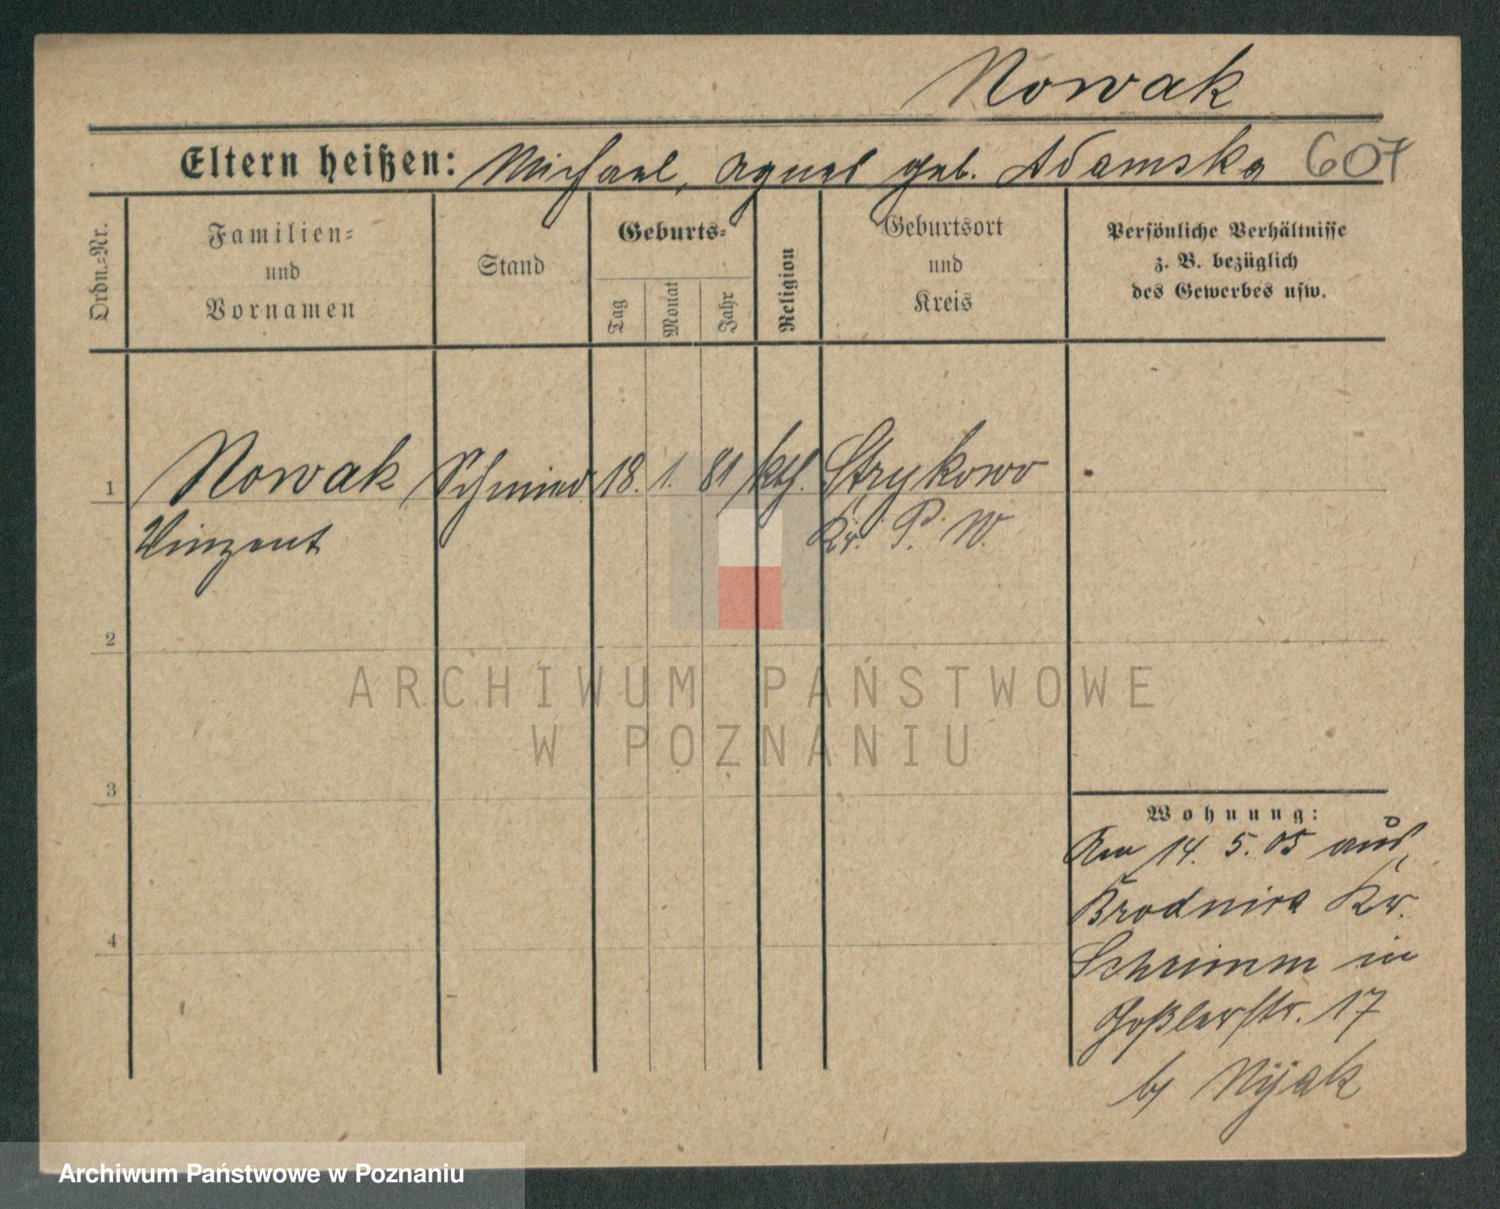 Nowak
Eltern heißen: Michael, Agnes geb. Adamska 607
Ordn.=Nr.
Familien=
und
Vornamen
Stand
Geburts=
Tag
Monat
Jahr
Religion
Geburtsort
und
Kreis
Persönliche Verhältnisse
z. B. bezüglich
des Gewerbes usw.
1 Nowak Schmied 18. 1. 81 kth. Strykowo
Vinzent Kr. P. W.
2
3
4
Wohnung:
Am 14. 5. 05 aus
Brodnica Kr.
Schrimm in
Goßlerstr. 17
b/ Nijak
ARCHIWUM PAŃSTWOWE
W POZNANIU
Archiwum Państwowe w Poznaniu